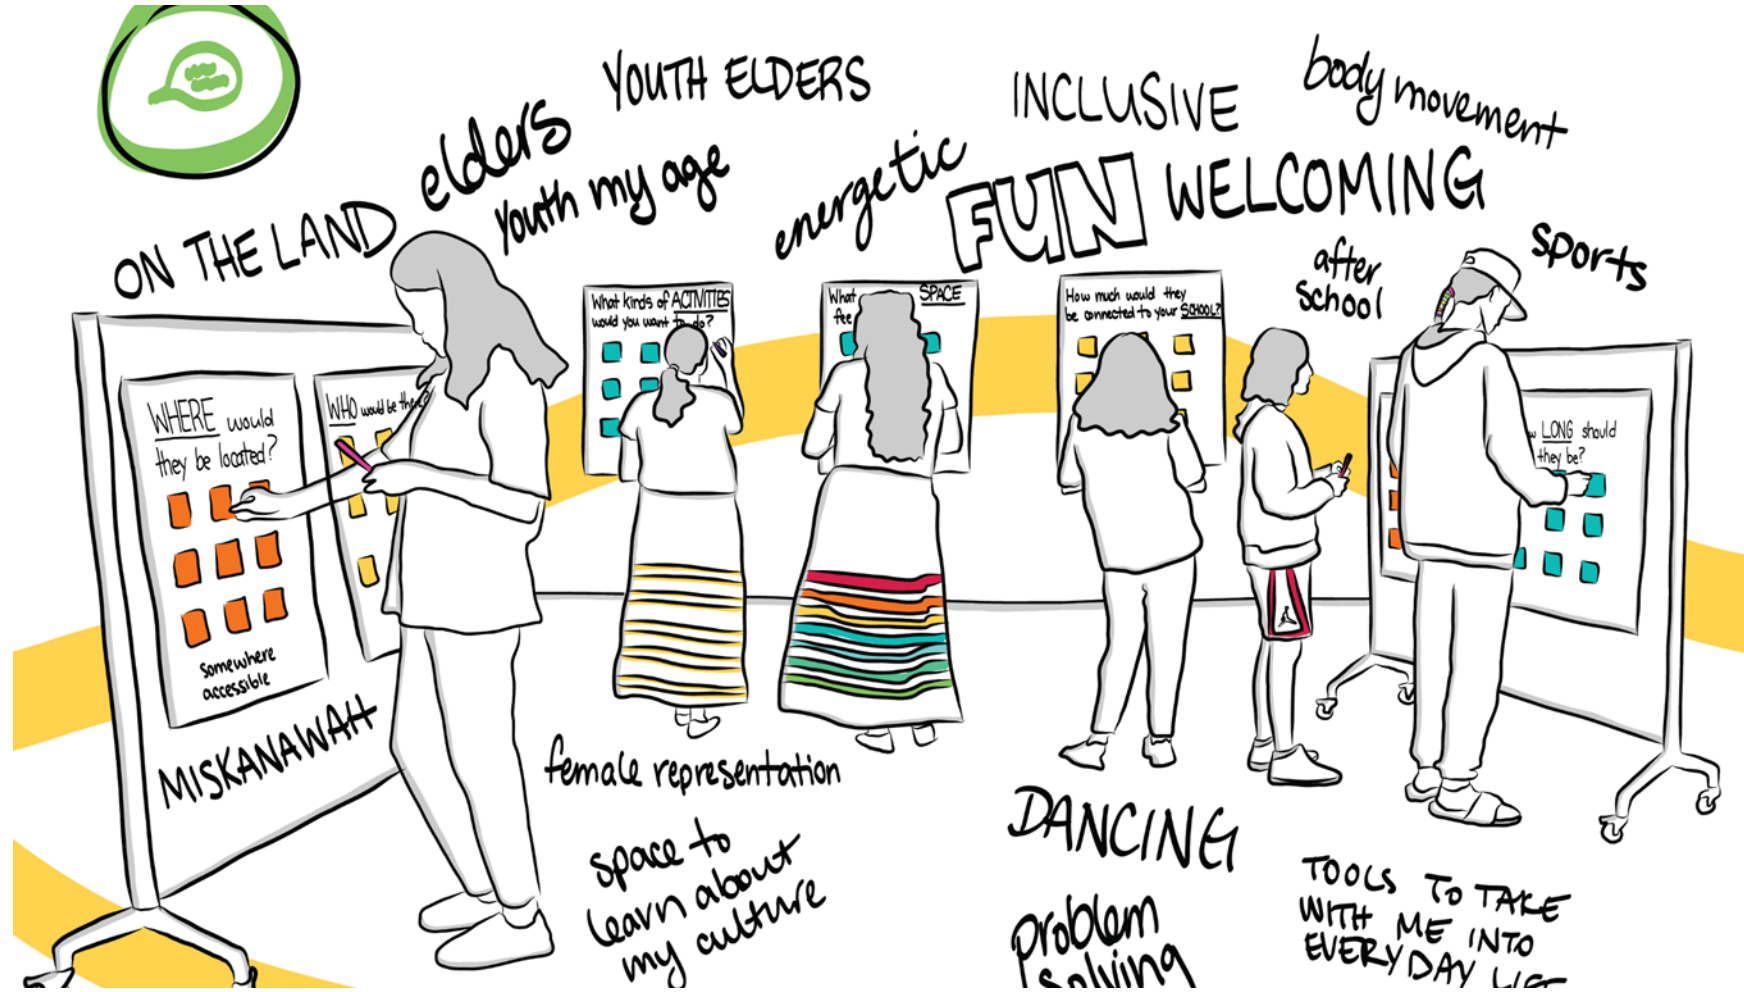 YOUTH ELDERS
elders
youth my age
ON THE LAND
energetic
INCLUSIVE
FUN
WELCOMING
body movement
after
school
sports
WHERE would
they be located?
somewhere
accessible
WHO would be there?
What kinds of ACTIVITIES
would you want to do?
What
fee
SPACE
How much would they
be connected to your SCHOOL?
w LONG should
they be?
MISKANAWAH
female representation
space to
learn about
my culture
DANCING
problem
solving
TOOLS TO TAKE
WITH ME INTO
EVERYDAY LIFE